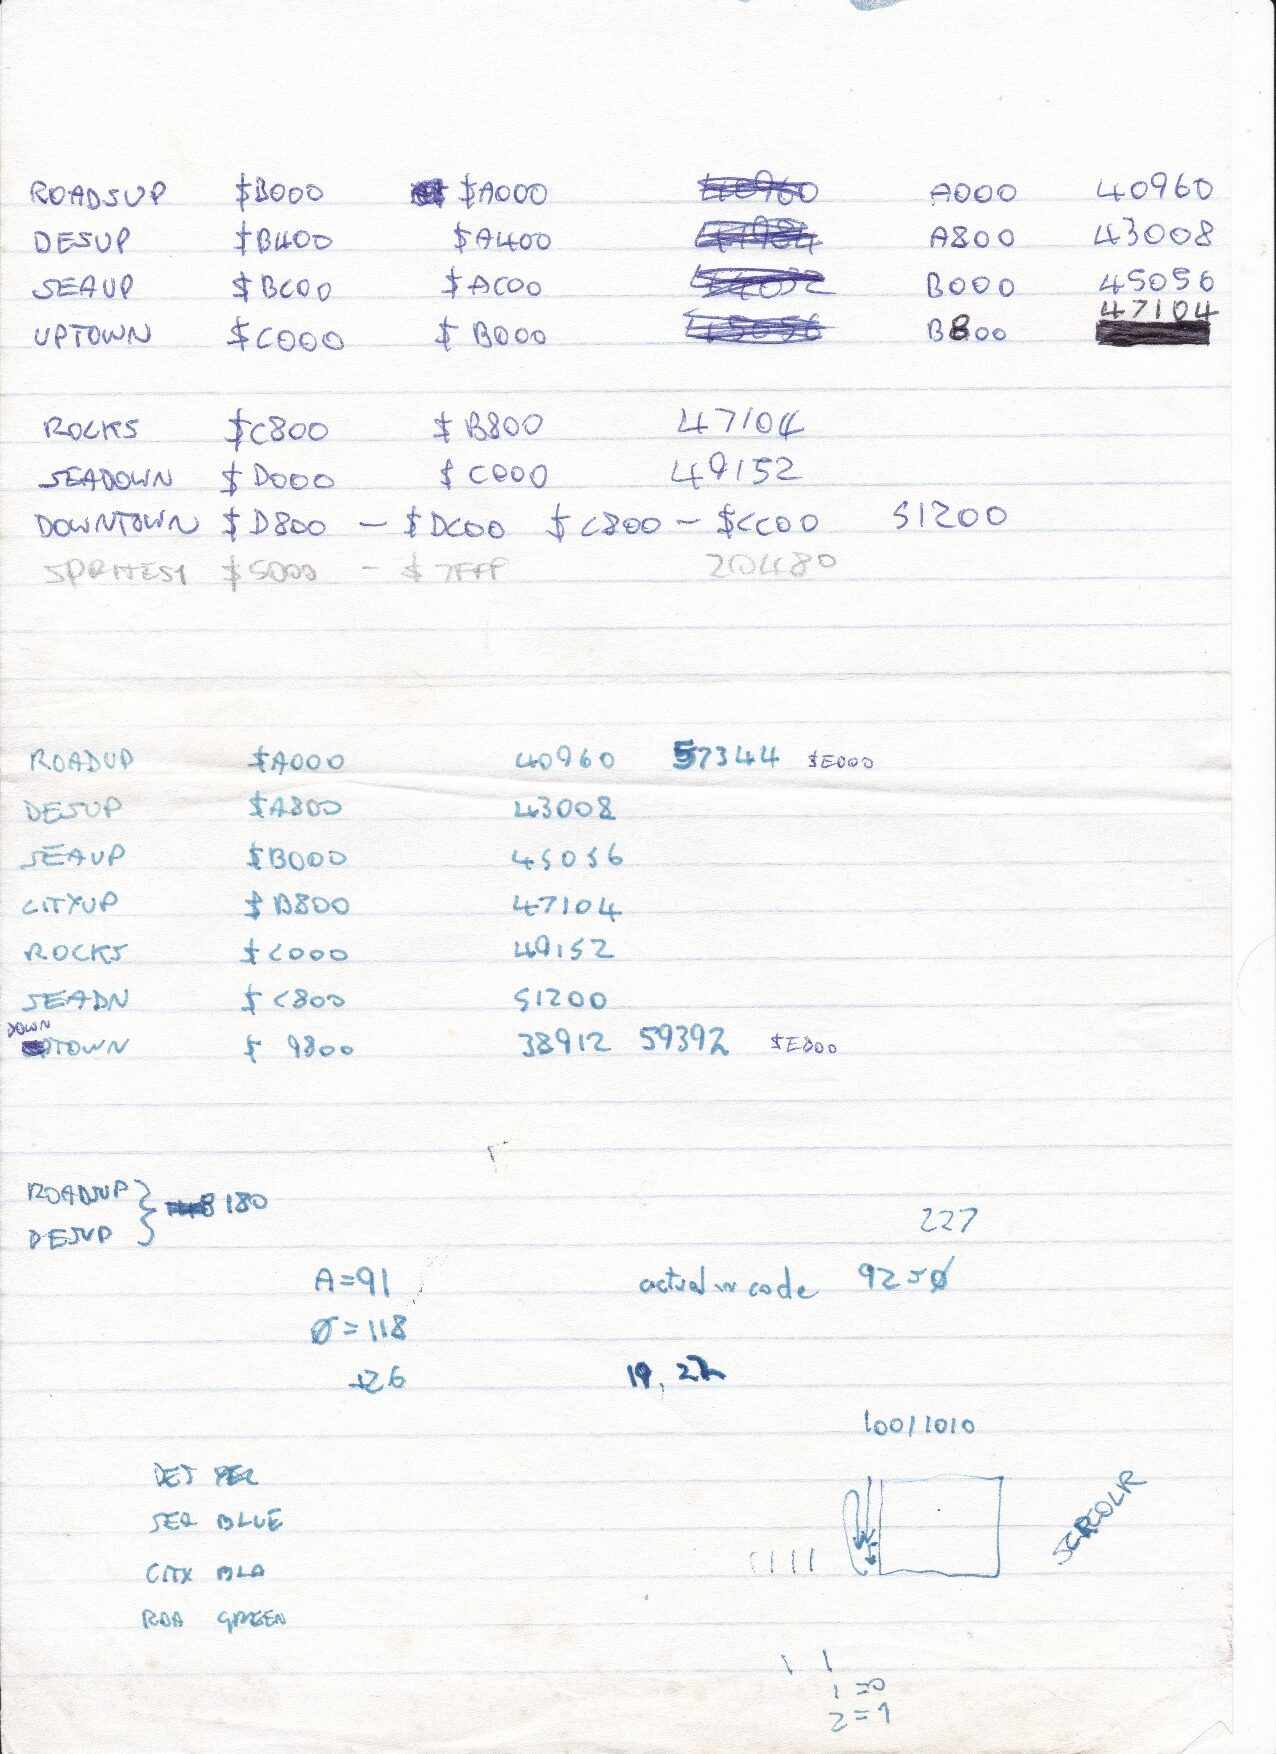 ROADSUP $B000 $A000 40960 A000 40960
DESUP $B400 $A400 41984 A800 43008
SEAUP $BC00 $AC00 44032 B000 45056
47104
UPTOWN $C000 $B000 45056 B800
ROCKS $C800 $B800 47104
SEADOWN $D000 $C000 49152
DOWNTOWN $D800 - $DC00 $C800 - $CC00 51200
SPRITES1 $5000 - $7FFF 20480
ROADUP $A000 40960 57344 $E000
DESUP $A800 43008
SEAUP $B000 45056
CITYUP $B800 47104
ROCKS $C000 49152
SEADN $C800 51200
DOWN
TOWN $9800 38912 59392 $E800
ROADSUP
180
DESUP
227
A=91 actual in code 9250
0=118
+26 19, 22
10011010
DES YEL
SEA BLUE
SCRCOLR
CITY BLA
ROA GREEN
1 1
1 =0
2 =1